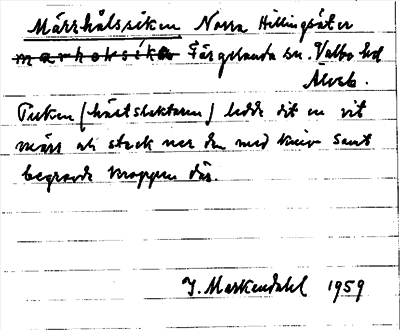 Märrhålssiken Norra Hillingsäter
marhoksika Färgelanda sn. Valbo hd
Älvsb.
Pucken (hästslaktaren) ledde dit en vit
märr och stack ner den med kniv samt
begravde kroppen där.
J. Markendahl 1959